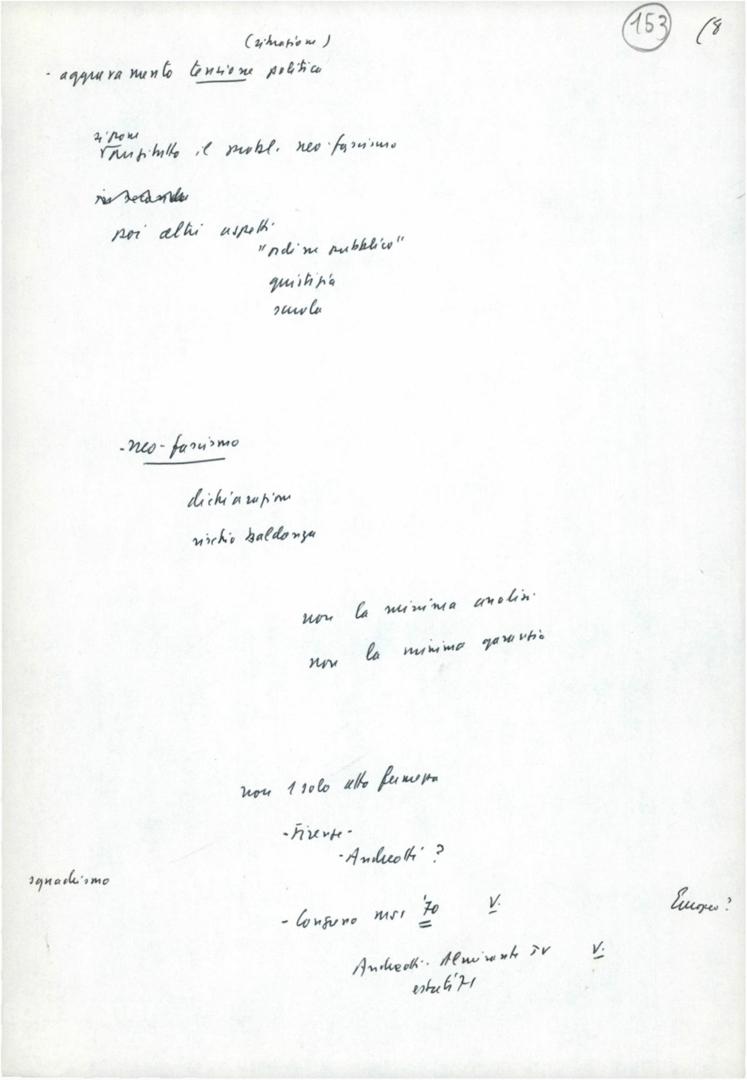 153 (8
(situazione)
- aggravamento tensione politica
si pone
anzitutto il probl. neo-fascismo
poi altri aspetti
"ordine pubblico"
giustizia
scuola
- neo-fascismo
dichiarazioni
rischio baldanza
non la minima analisi
non la minima garanzia
non 1 solo atto fermezza
- Firenze -
- Andreotti ?
squadrismo
- Congresso MSI '70 V.
Europeo ?
Andreotti. Almirante TV V.
estate '71